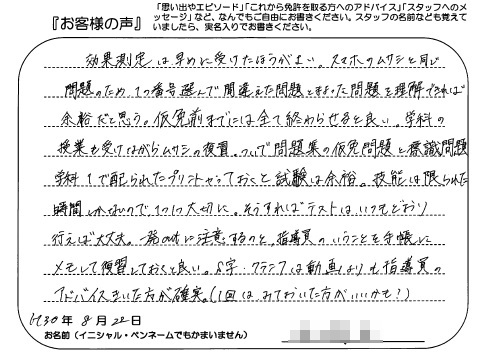 『お客様の声』
「思い出やエピソード」「これから免許を取る方へのアドバイス」「スタッフへのメッセージ」など、なんでもご自由にお書きください。スタッフの名前なども覚えていましたら、実名入りでお書きください。
効果測定は早めに受けたほうがよい。スマホのムサシと同じ
問題のため1つ番号選んで間違えた問題とまよった問題を理解できれば
余裕だと思う。仮免前までには全て終わらせると良い。学科の
授業も受けながらムサシの復習。ついで問題集の仮免問題と標識問題
学科1で配られたプリントやっておくと試験は余裕。技能は限られた
時間しかないので1つ1つ大切に。そうすればテストはいつもどおり
行えば大丈夫。一発のみに注意するのと、指導員のいうことを手帳に
メモして復習しておくと良い。S字・クランクは動画よりも指導員の
アドバイスきいた方が確実。(1回はみておいた方がいいかも?)
H30年8月22日
お名前(イニシャル・ペンネームでもかまいません)